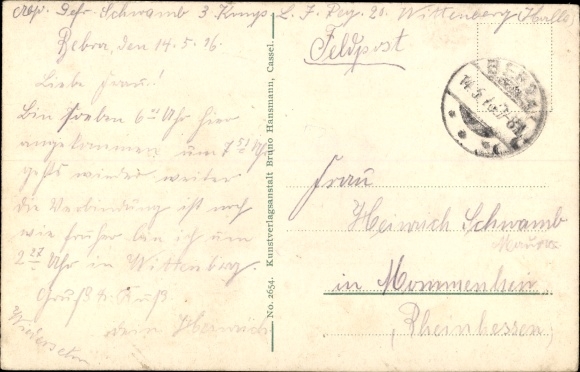 Abs. Gefr. Schwamb 3. Komp. L. I. Reg. 20. Wittenberg (Halle)
Bebra, den 14.5.16.
Feldpost
Liebe Frau!
Bin soeben 6 Uhr hier
angekommen um 7 51 Uhr
gehts wieder weiter
die Verbindung ist noch
wie früher bin ich um
2 27 Uhr in Wittenberg.
Gruß & Kuß
dein Heinrich
Wiedersehn
BEBRA
14.5.16
No. 2654. Kunstverlagsanstalt Bruno Hansmann, Cassel.
Frau
Heinrich Schwamb
Maurer
in Mommenheim
(Rheinhessen)